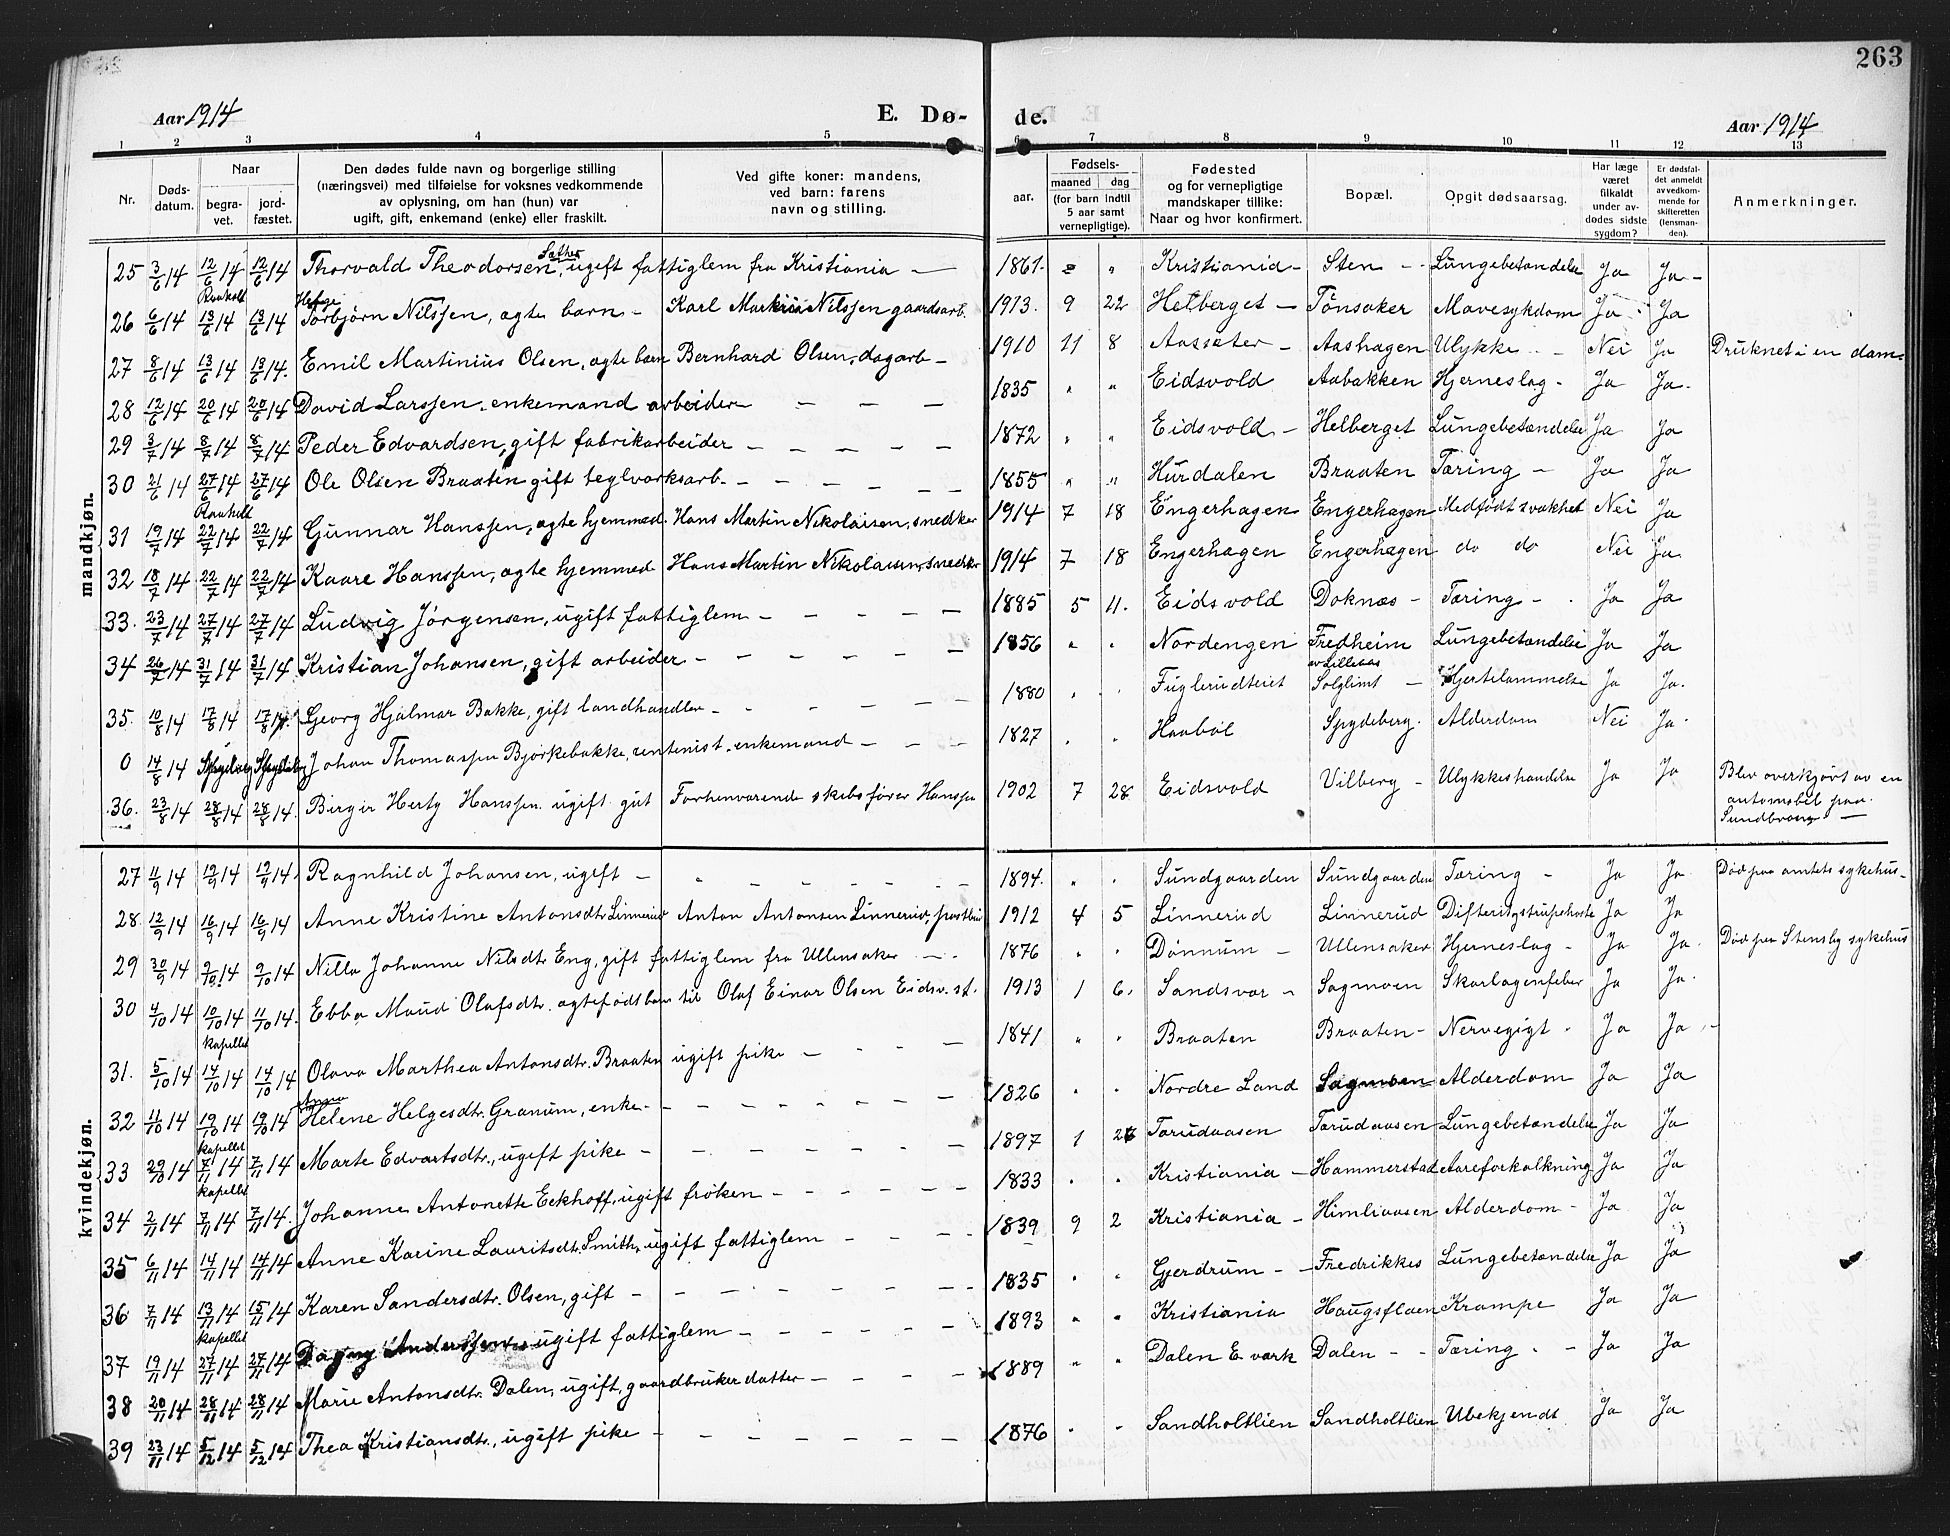 263
Aar 1914 E. Dø- de. Aar 1914
1 2 3 4 5 6 7 8 9 10 11 12 13
Nr. Døds-datum. Naar begra-vet. jord-fæstet. Den dødes fulde navn og borgerlige stilling (næringsvei) med tilføielse for voksnes vedkommende av oplysning, om han (hun) var ugift, gift, enkemand (enke) eller fraskilt. Ved gifte koner: mandens, ved barn: farens navn og stilling. aar. Fødsels- maaned dag (for barn indtil 5 aar samt vernepligtige). Fødested og for vernepligtige mandskaper tillike: Naar og hvor konfirmert. Bopæl. Opgit dødsaarsag. Har læge været tilkaldt under av-dødes sidste sygdom? Er dødsfal-det anmeldt av vedkom-mende for skifteretten (lensman-den). Anmerkninger.
mandkjøn.
25 3/6 14 12/6 14 12/6 14 Thorvald Theodorsen Sæther, ugift fattiglem fra Kristiania — 1861. " " Kristiania - Sten - - Lungebetændelse Ja Ja -
26 6/6 14 Raaholt 13/6 14 13/6 14 Helge Torbjørn Nilssen, ægte barn - Karl Markus Nilssen gaardsarb. 1913. 9 22 Helberget - Tönsaker Mavesykdom Ja Ja
27 8/6 14 13/6 14 13/6 14. Emil Martinius Olsen, ægte barn Bernhard Olsen, dagarb - 1910 11 8 Aasseter - Aashagen Ulykke - Nei Ja Druknet i en dam
28 12/6 14 20/6 14 20/6 14 David Larssen, enkemand arbeider - - - 1835 " " Eidsvold Aabakken Hjerneslag - Ja Ja.
29 3/7 14 8/7 14 8/7 14 Peder Edvardsen, gift fabrikarbeider - - - - 1872 " " Eidsvold - Helberget Lungebetændelse Ja Ja
30 21/6 14 27/6 14 27/6 14 Ole Olsen Braaten gift teglverksarb. - - - - - 1855 " " Hurdalen Braaten Tæring - Ja Ja
31 19/7 14 Raaholt 22/7 14 22/7 14 Gunnar Hanssen, ægte hjemmed. Hans Martin Nikolaisen, snedker 1914 7 18 Engerhagen Engerhagen Medfödt svakhet Nei Ja
32 18/7 14 22/7 14 22/7 14 Kaare Hanssen, ægte hjemmed Hans Martin Nikolaisen, snedker 1914 7 18 Engerhagen Engerhagen do do Nei Ja
33. 23/7 14 27/7 14 27/7 14 Ludvig Jørgensen, ugift fattiglem - - - - 1885 5 11. Eidsvold Doknæs - Tæring - Ja Ja
34 26/7 14 31/7 14 31/7 14 Kristian Johansen, gift arbeider - - - - - 1856 " " Nordengen Fredheim av Lilleaas Lungebetændelse Ja Ja
35. 10/8 14 17/8 14 17/8 14. Georg Hjalmar Bakke, gift landhandler - - - - - 1880 " " Fuglerudteiet Solglimt - Hjertelammelse Ja Ja.
0 14/8 14 Spydeberg Spydeberg Johan Thomassen Bjørkebakke, rentenist, enkemand - - - 1827 " " Haabøl Spydeberg. Alderdom Nei Ja.
36. 23/8 14 28/8 14 28/8 14 Birger Herty Hanssen ugift gut Forhenværende skibsfører Hanssen 1902 7 28 Eidsvold Vilberg - Ulykkeshændelse Ja Ja Blev overkjørt av en automobil paa Sundbraaten -
kvindekjøn.
27 11/9 14 19/9 14 19/9 14. Ragnhild Johansen, ugift - - - - - 1894. " " Sundgaarden Sundgaarden Tæring - Ja Ja Død paa amtets sykehus -
28. 12/9 14 16/9 14 16/9 14 Anne Kristine Antonsdtr Linnerud Anton Antonsen Linnerud, postbud 1912 4 5 Linnerud Linnerud Difteri og strupehoste Ja Ja
29 30/9 14 9/10. 14 9/10 14 Nilla Johanne Nilsdtr. Eng, gift fattiglem fra Ullensaker - 1876 " " Dönnum - Ullensaker Hjerneslag - Ja Ja. Død paa Stensby sykehus
30 4/10 14 10/10 14 11/10 14. Ebba Maud Olafsdtr. ægtefødt barn til Olaf Einar Olsen Eidsv. st. 1913 1 6. Sandsvær - Sagmoen Skarlagenfeber Ja Ja.
31. 5/10 14 kapellet 14/10 14 14/10 14 Olava Marthea Antonsdtr. Braaten ugift pike - - - - 1841 " " Braaten Braaten - Nervegigt - Ja Ja -
32 11/10 14 19/10 14 19/10 14 Anna Helene Helgesdtr. Granum, enke - - - - - 1826 " " Nordre Land Sagmoen Alderdom Ja Ja
33 29/10 14 kapellet 7/11 14 7/11 14 Marte Edvartsdtr., ugift pike - - - - - 1897 1 26 Tærudaasen Tærudaasen Lungebetændelse Ja Ja
34 2/11 14 kapellet 7/11 14 7/11 14. Johanne Antonette Eckhoff, ugift frøken - - - - - 1833 " " Kristiania - Hammerstad Aareforkalkning Ja Ja
35 6/11 14 14/11 14 14/11 14 Anne Karine Lauritsdtr. Smith, ugift fattiglem - - - - 1839 9 2 Kristiania - Himliaasen Alderdom - Ja Ja
36 7/11 14 13/11 14 15/11 14 Karen Sandersdtr. Olsen, gift - - - - - 1835 " " Gjerdrum - - Fredrikkes Lungebetændelse Ja Ja
37 19/11 14 kapellet 27/11 14 27/11 14 Dagny Anderssen ugift fattiglem - - - - - 1893 " " Kristiania Haugsflaen Krampe Ja Ja
38 20/11 14 28/11 14 28/11 14 Marie Antonsdtr. Dalen, ugift, gaardbruker datter - - - - 1889 " " Dalen E. værk Dalen - - Tæring - - Ja Ja
39 23/11 14 5/12 14 5/12 14 Thea Kristiansdtr., ugift pike - - - - - 1876 " " Sandholtlien Sandholtlien Ubekjendt Ja Ja